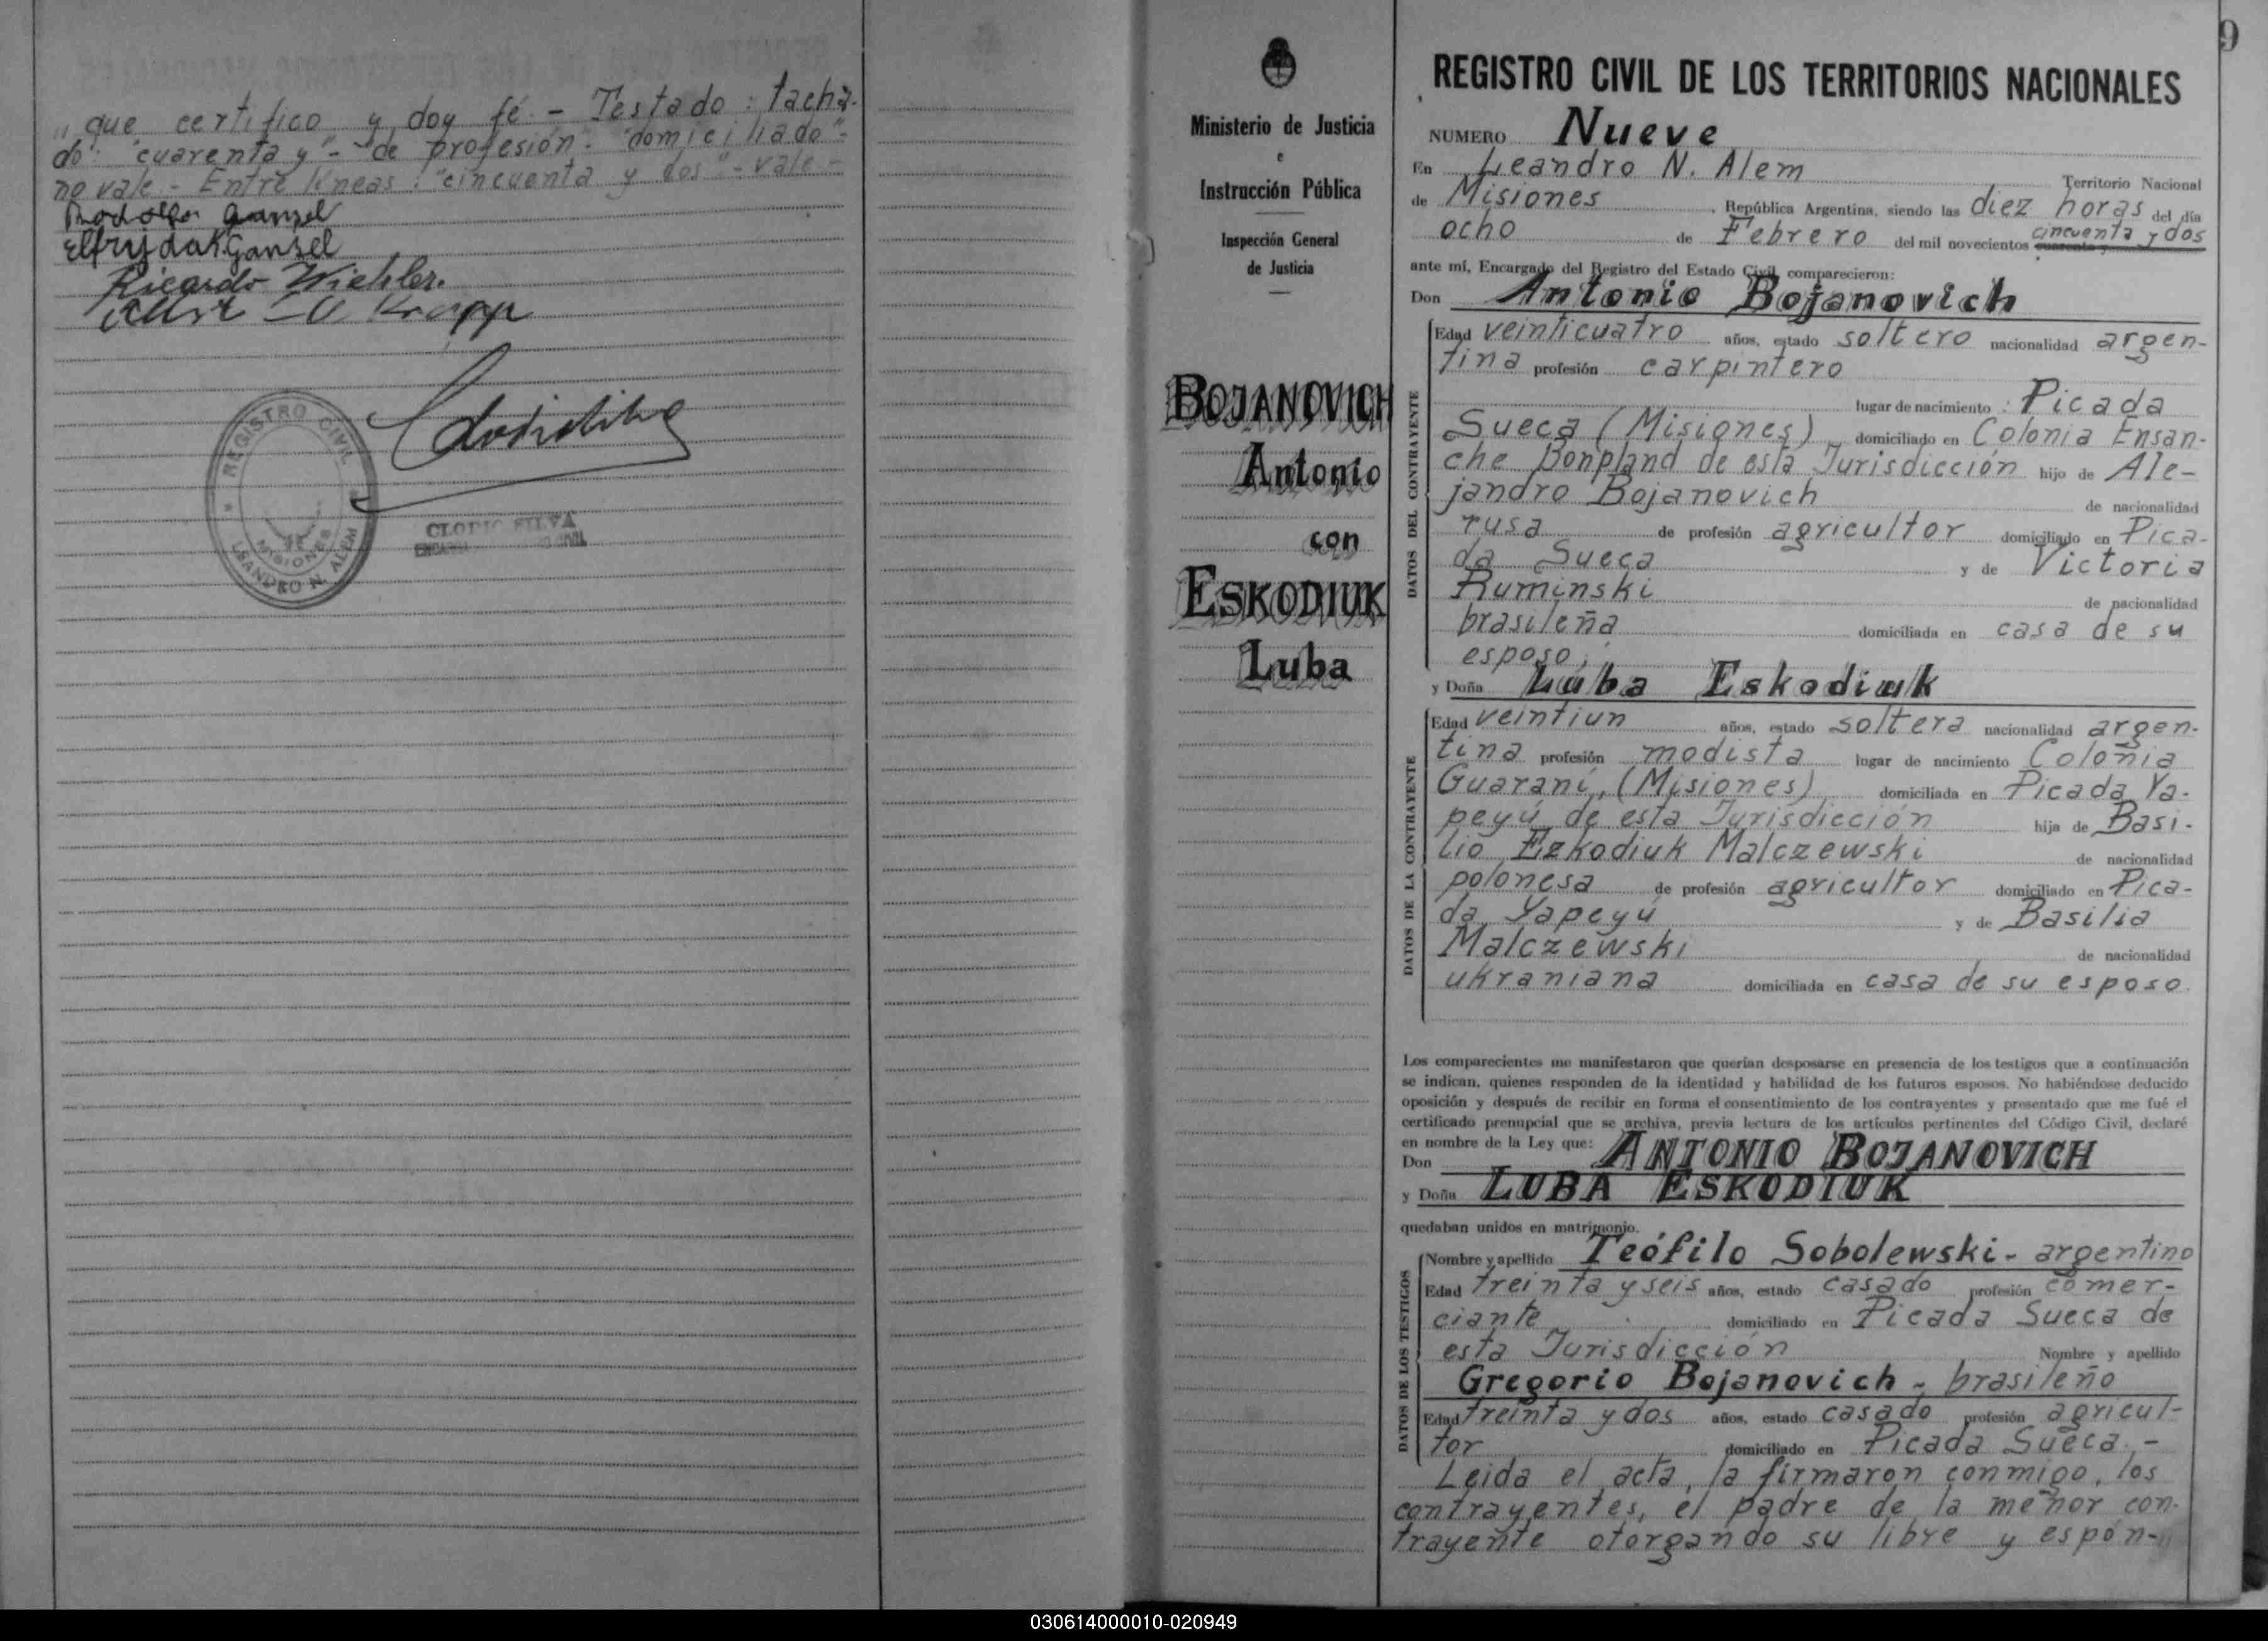 " que certifico y doy fé. - Testado: tacha-
do: "cuarenta y" - "de profesión" - "domiciliado" -
no vale - Entre líneas: "cincuenta y dos" - vale -
Rodolfo Gansel
Elfrijda K. Gansel
Ricardo Wiehler.
Krapp
REGISTRO CIVIL
MISIONES
LEANDRO N. ALEM
CLODIO SILVA
9
Ministerio de Justicia
e
Instrucción Pública
Inspección General
de Justicia
BOJANOVICH
Antonio
con
ESKODIUK
Luba
REGISTRO CIVIL DE LOS TERRITORIOS NACIONALES
NUMERO Nueve
En Leandro N. Alem Territorio Nacional
de Misiones, República Argentina, siendo las diez horas del día
ocho de Febrero del mil novecientos cuarenta y cincuenta y dos
ante mí, Encargado del Registro del Estado Civil, comparecieron:
Don Antonio Bojanovich
DATOS DEL CONTRAYENTE
Edad veinticuatro años, estado soltero nacionalidad argen-
tina profesión carpintero
lugar de nacimiento: Picada
Sueca (Misiones) domiciliado en Colonia Ensan-
che Bonpland de esta Jurisdicción hijo de Ale-
jandro Bojanovich de nacionalidad
rusa de profesión agricultor domiciliado en Pica-
da Sueca y de Victoria
Ruminski de nacionalidad
brasileña domiciliada en casa de su
esposo,
y Doña Luba Eskodiuk
DATOS DE LA CONTRAYENTE
Edad veintiun años, estado soltera nacionalidad argen-
tina profesión modista lugar de nacimiento Colonia
Guaraní, (Misiones) domiciliada en Picada Ya-
peyú de esta Jurisdicción hija de Basi-
lio Eskodiuk Malczewski de nacionalidad
polonesa de profesión agricultor domiciliado en Pica-
da Yapeyú y de Basilia
Malczewski de nacionalidad
ukraniana domiciliada en casa de su esposo.
Los comparecientes me manifestaron que querían desposarse en presencia de los testigos que a continuación
se indican, quienes responden de la identidad y habilidad de los futuros esposos. No habiéndose deducido
oposición y después de recibir en forma el consentimiento de los contrayentes y presentado que me fué el
certificado prenupcial que se archiva, previa lectura de los artículos pertinentes del Código Civil, declaré
en nombre de la Ley que:
Don ANTONIO BOJANOVICH
y Doña LUBA ESKODIUK
quedaban unidos en matrimonio.
DATOS DE LOS TESTIGOS
Nombre y apellido Teófilo Sobolewski - argentino
Edad treinta y seis años, estado casado profesión comer-
ciante domiciliado en Picada Sueca de
esta Jurisdicción Nombre y apellido
Gregorio Bojanovich - brasileño
Edad treinta y dos años, estado casado profesión agricul-
tor domiciliado en Picada Sueca. -
Leida el acta, la firmaron conmigo, los
contrayentes, el padre de la menor con-
trayente otorgando su libre y espón-
030614000010-020949